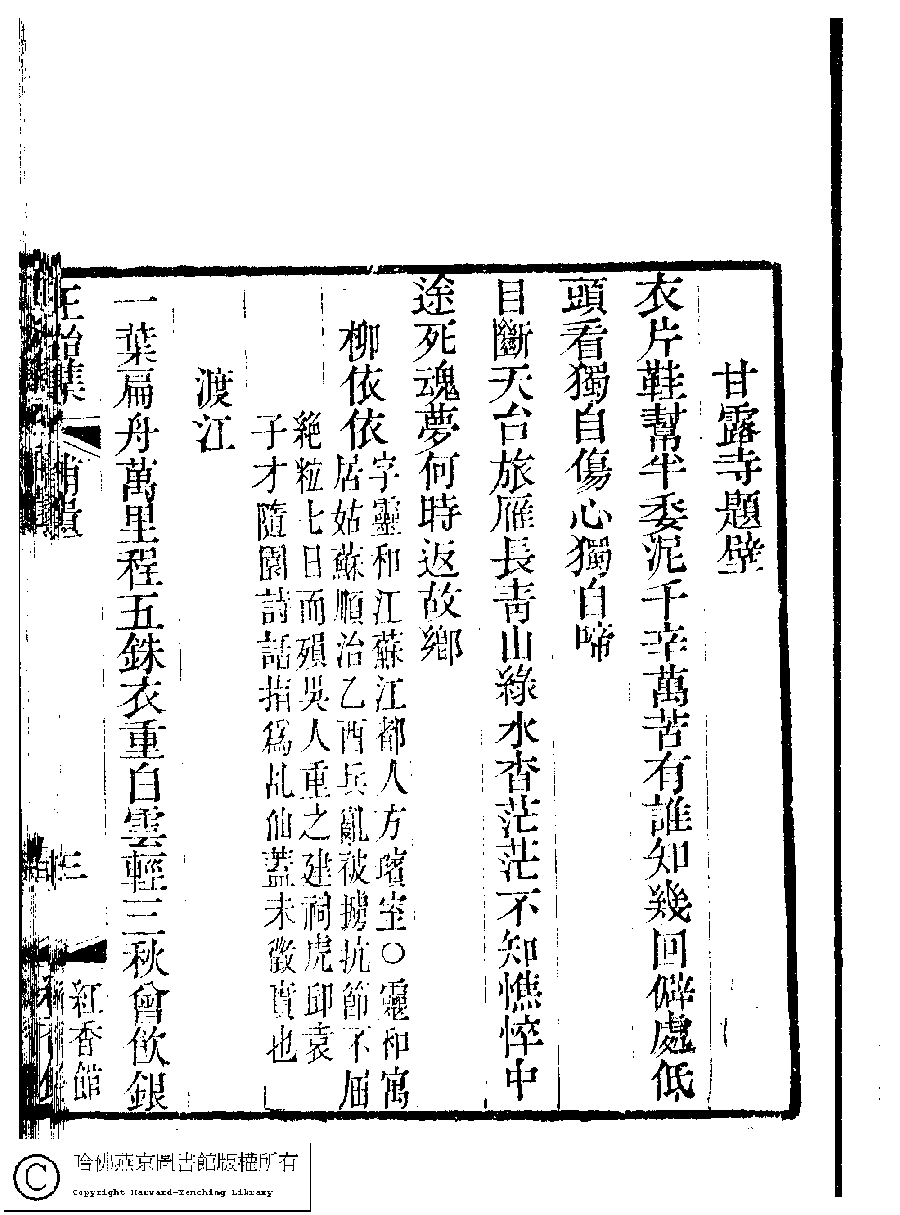 甘露寺題壁
衣片鞋幫半委泥千辛萬苦有誰知幾回僻處低
頭看獨自傷心獨自啼
目斷天台旅雁長靑山綠水杳茫茫不知憔悴中
途死魂夢何時返故鄉
柳依依
字靈和江蘇江都人方璸室○靈和寓
居姑蘇順治乙酉兵亂被擄抗節不屈
絶粒七日而殞吳人重之建祠虎邱袁
子才隨園詩話指爲乩仙蓋未徵實也
渡江
一葉扁舟萬里程五銖衣重白雲輕三秋曾飮銀
正始集
補遺
三
紅香館
哈佛燕京圖書館版權所有
Copyright Harvard-Yenching Library